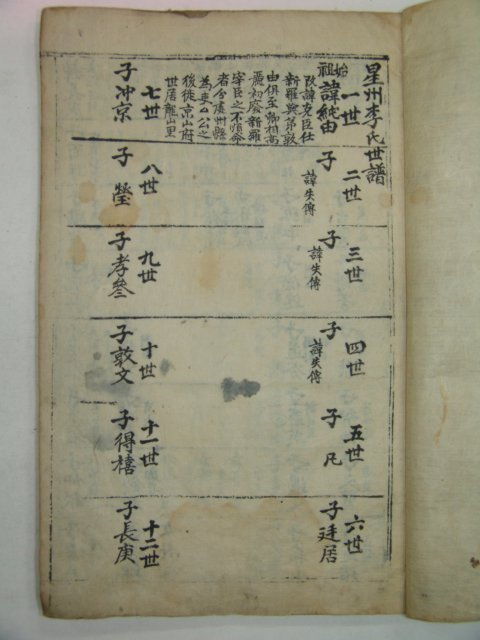 星州李氏世譜
一世
始祖
諱純由
改諱克臣仕
新羅與弟敦
由俱至卿相高
麗初廢新羅
宰臣之不順命
者分處州縣
為吏公公之
後徙京山府
世居龍山里
二世
子
諱失傳
三世
子
諱失傳
四世
子
諱失傳
五世
子 凡
六世
子廷居
七世
子冲京
八世
子 瑩
九世
子孝叅
十世
子敦文
十一世
子得禧
十二世
子長庚